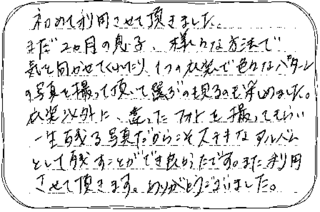 初めて利用させて頂きました。
まだ2ヵ月の息子、様々な方法で
気を向かせてくれたり、1つの衣装で色々なパターン
の写真を撮って頂いて選ぶのも見るのも楽しめました。
衣装以外に、違ったフォトを撮ってもらい
一生残る写真だからこそステキなアルバム
として残すことができ良かったです。また利用
させて頂きます。ありがとうございました。